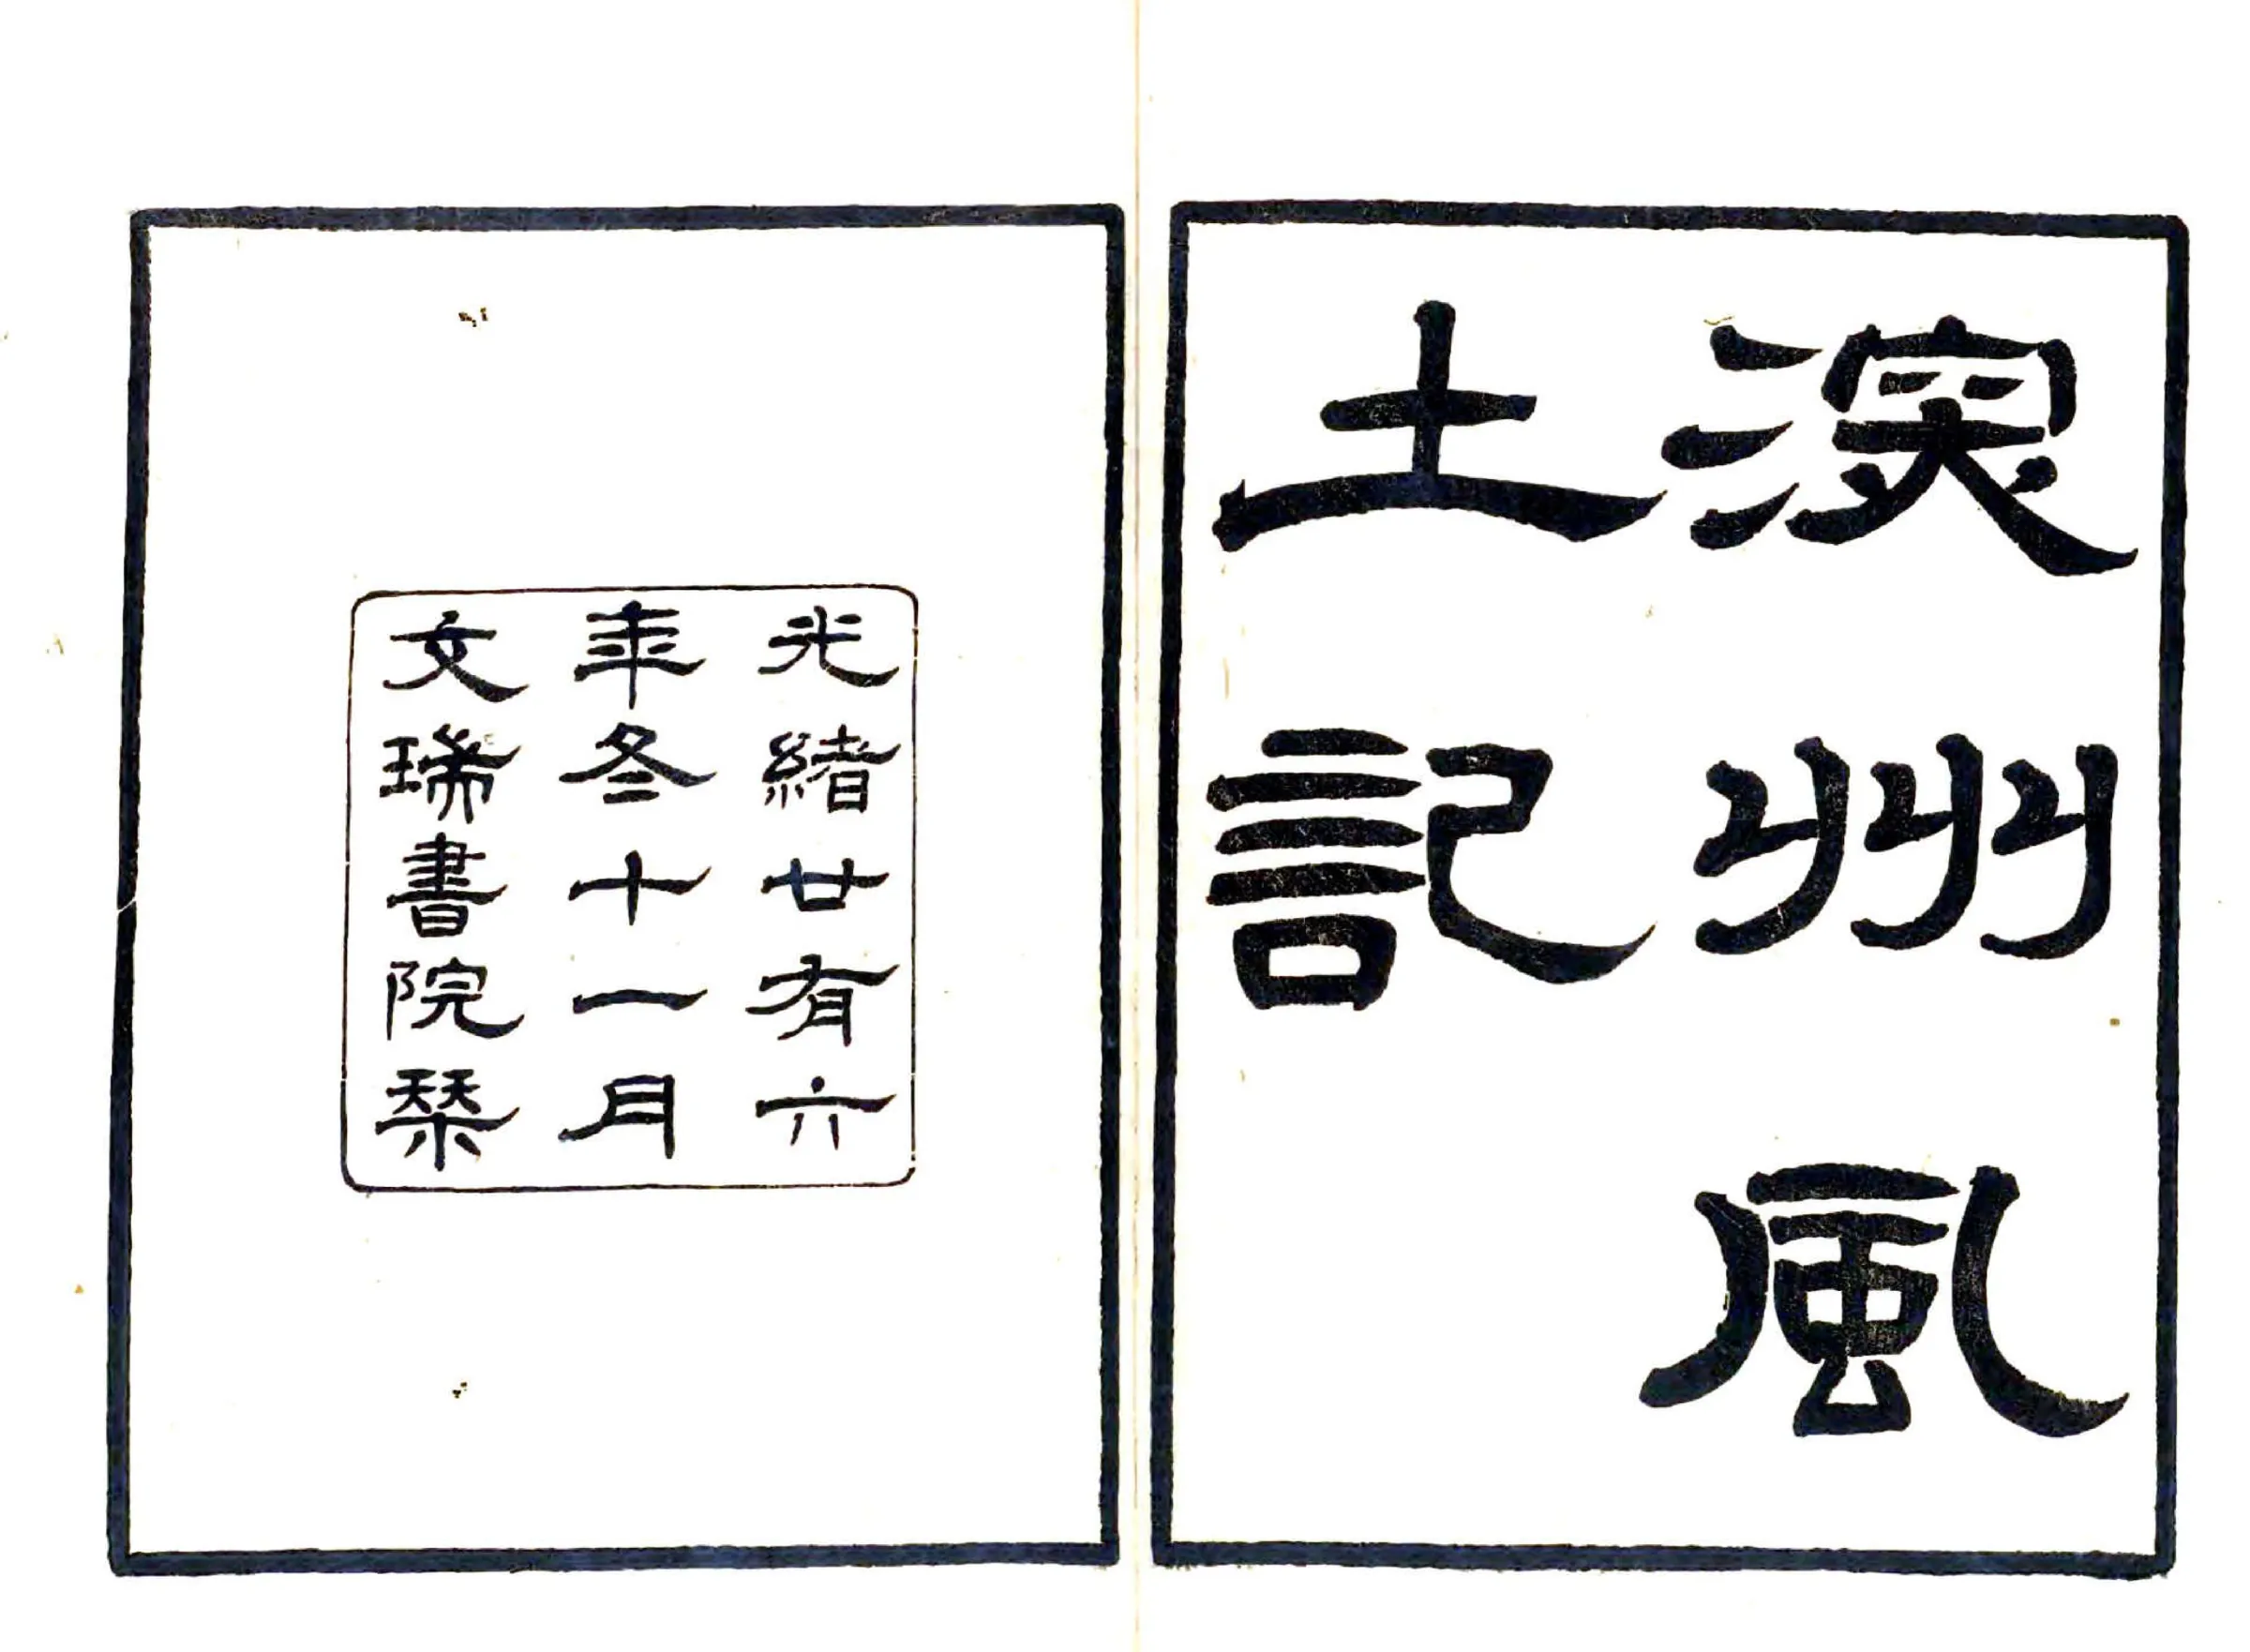 深州風
土記
光緒廿有六
年冬十一月
文瑞書院栞